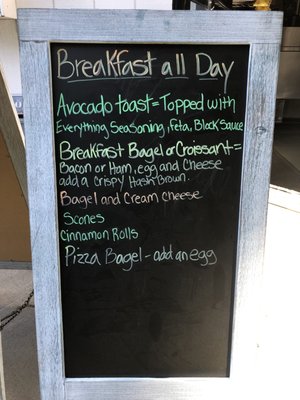 Breakfast all Day
Avocado toast = Topped with
Everything Seasoning, Feta, Black Sauce
Breakfast Bagel or Croissant =
Bacon or Ham, egg and Cheese
add a Crispy Hash Brown.
Bagel and Cream cheese
Scones
Cinnamon Rolls
Pizza Bagel - add an egg